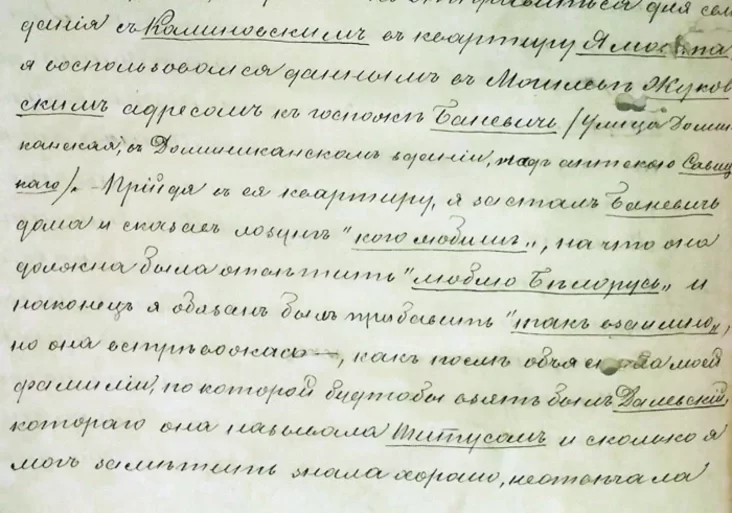 отправиться для сви
данія съ Калиновскимъ въ квартиру Ямонта
я воспользовался даннымъ въ Могилевѣ Жуков
скимъ адресомъ къ госпожѣ Баневичь /улица Домини
канская, въ Доминиканскомъ зданіи, надъ аптекою Савиц
каго/. Прійдя въ ея квартиру, я засталъ Баневичь
дома и сказалъ лозунгъ "кого любишь„, на что она
должна была отвѣтить "люблю Бѣлорусь„ и
наконецъ я обязанъ былъ прибавить "такъ взаимно„,
но она встрѣвожась, какъ послѣ моей
фамиліи, по которой будтобы взятъ былъ Далевскій,
котораго она называла Титусомъ и сколько я
могъ замѣтить знала хорошо, неотвѣчала